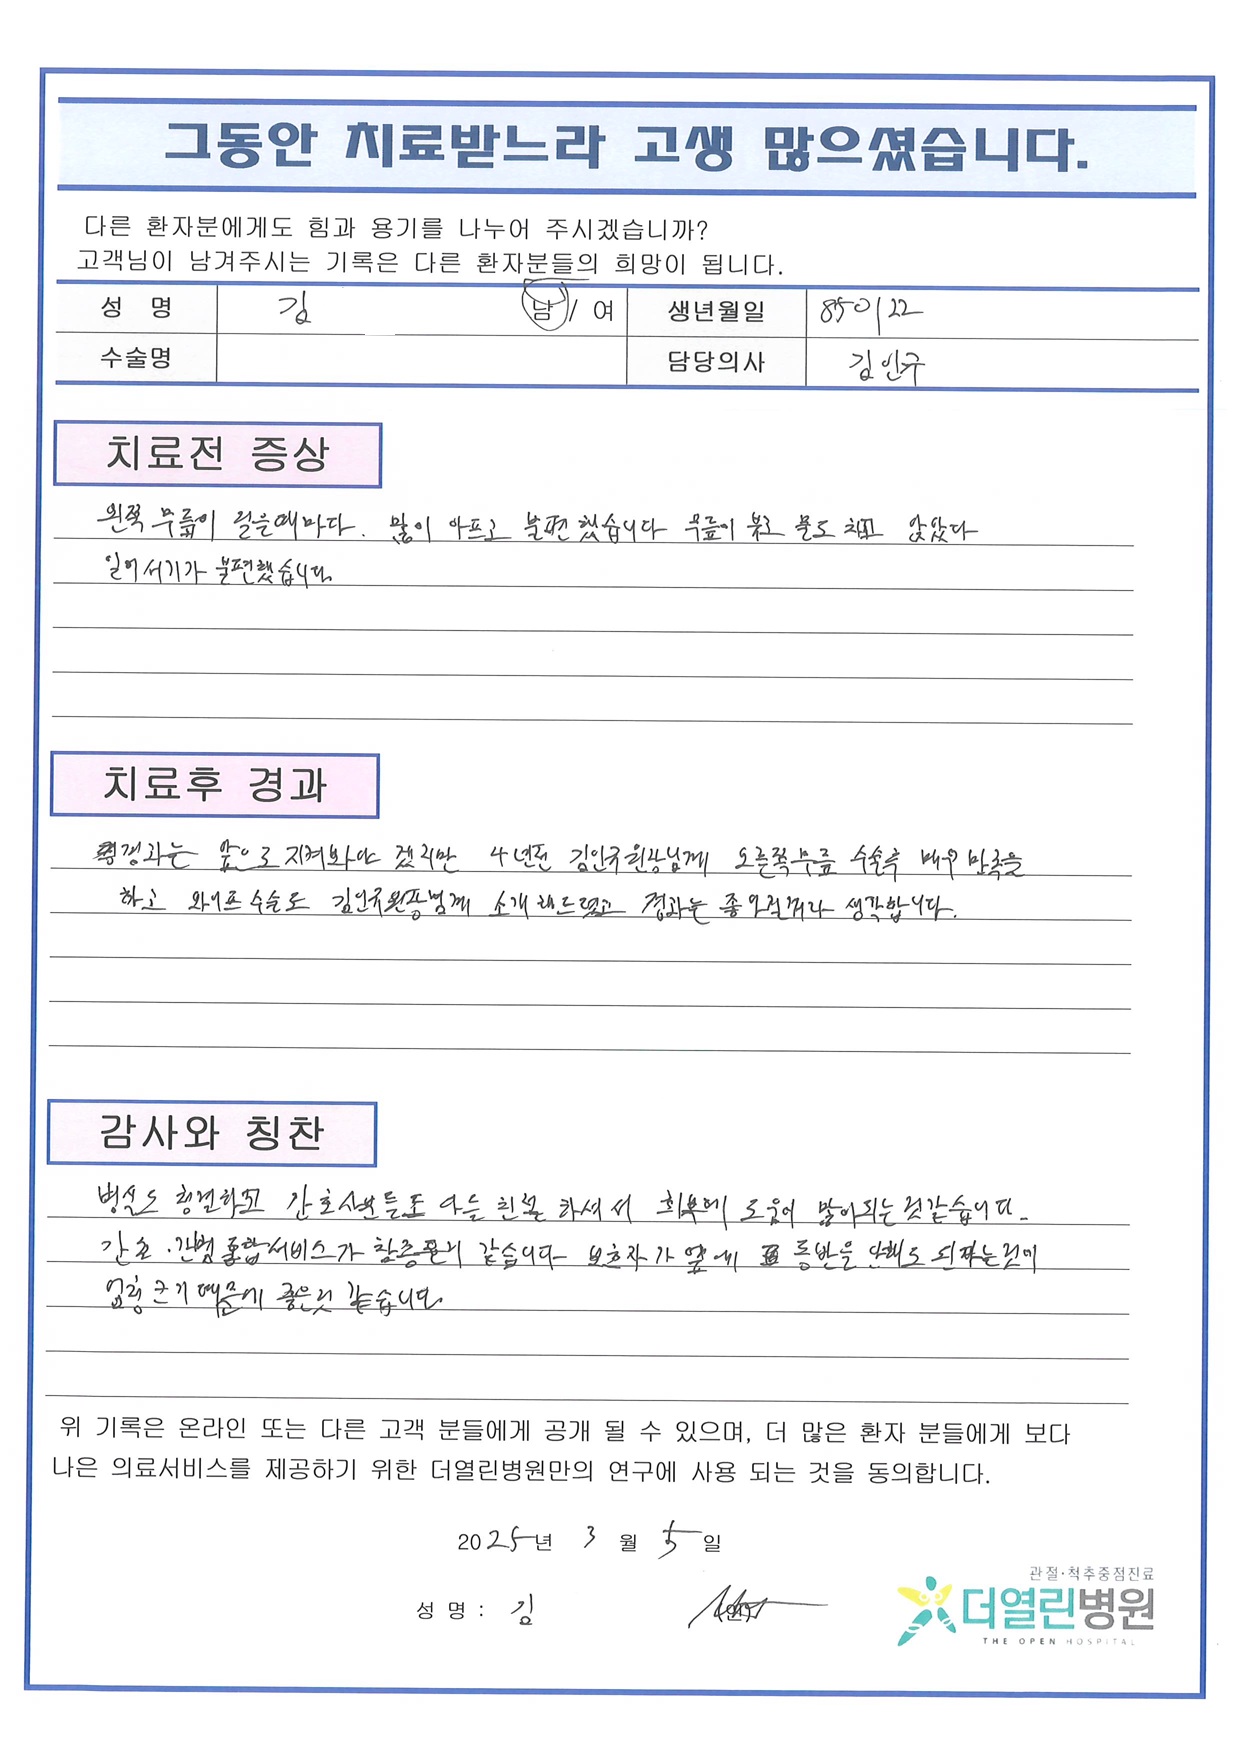 그동안 치료받느라 고생 많으셨습니다.
다른 환자분에게도 힘과 용기를 나누어 주시겠습니까?
고객님이 남겨주시는 기록은 다른 환자분들의 희망이 됩니다.
성 명 김 남 / 여 생년월일 850122
수술명 담당의사 김인규
치료전 증상
왼쪽 무릎이 걸을때마다. 많이 아프고 불편했습니다 무릎이 붓고 물도 차고 앉았다
일어서기가 불편했습니다.
치료후 경과
경과는 앞으로 지켜봐야 겠지만 4년전 김인규원장님께 오른쪽무릎 수술후 매우 만족을
하고 와이프 수술도 김인규원장님께 소개해드렸고 경과는 좋아질꺼라 생각합니다.
감사와 칭찬
병실도 청결하고 간호사분들도 다들 친절 하셔서 회복에 도움이 많이되는것같습니다.
간호·간병통합서비스가 참 같습니다 보호자가 옆에 동반을 안해도 된다는것이
엄청 크기때문에 좋은것 같습니다.
위 기록은 온라인 또는 다른 고객 분들에게 공개 될 수 있으며, 더 많은 환자 분들에게 보다
나은 의료서비스를 제공하기 위한 더열린병원만의 연구에 사용 되는 것을 동의합니다.
2025년 3월 5일
성 명 : 김
관절·척추중점진료
더열린병원
THE OPEN HOSPITAL